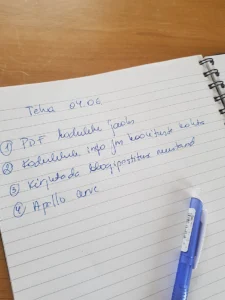 Teha 04.06
① PDF kodulehe jaoks
② Kodulehele info jm koolituste kohta
③ Kirjutada blogipostituse mustand
④ Apollo arve